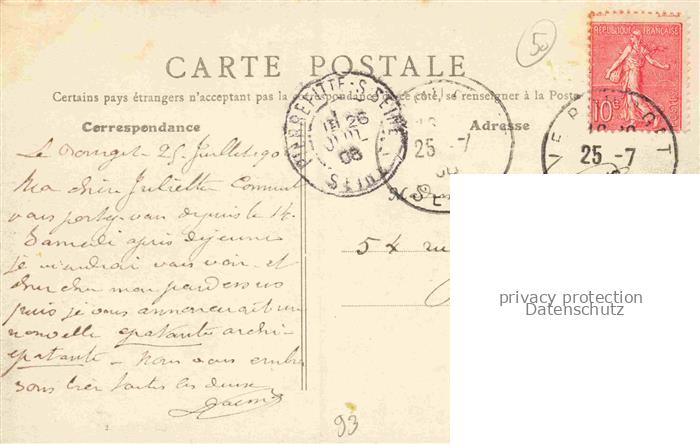 5
REPUBLIQUE FRANÇAISE
10 c
CARTE POSTALE
Certains pays étrangers n'acceptant pas la correspondance de ce côté, se renseigner à la Poste
Correspondance
Adresse
PIERREFITTE-S-SEINE
1E 26
JUIL
06
25 -7
06
SEINE
LE BOURGET
25 -7
Le Bourget 25 Juillet 190
Ma chère Juliette Comment
vous portez-vous depuis le 14.
Samedi après déjeuner
je viendrai vous voir et
chercher mon pardessus
puis je vous annoncerait une
nouvelle épatante archi-
épatante - Nous vous embras
sons bien toutes les deux
54 rue
93
privacy protection
Datenschutz